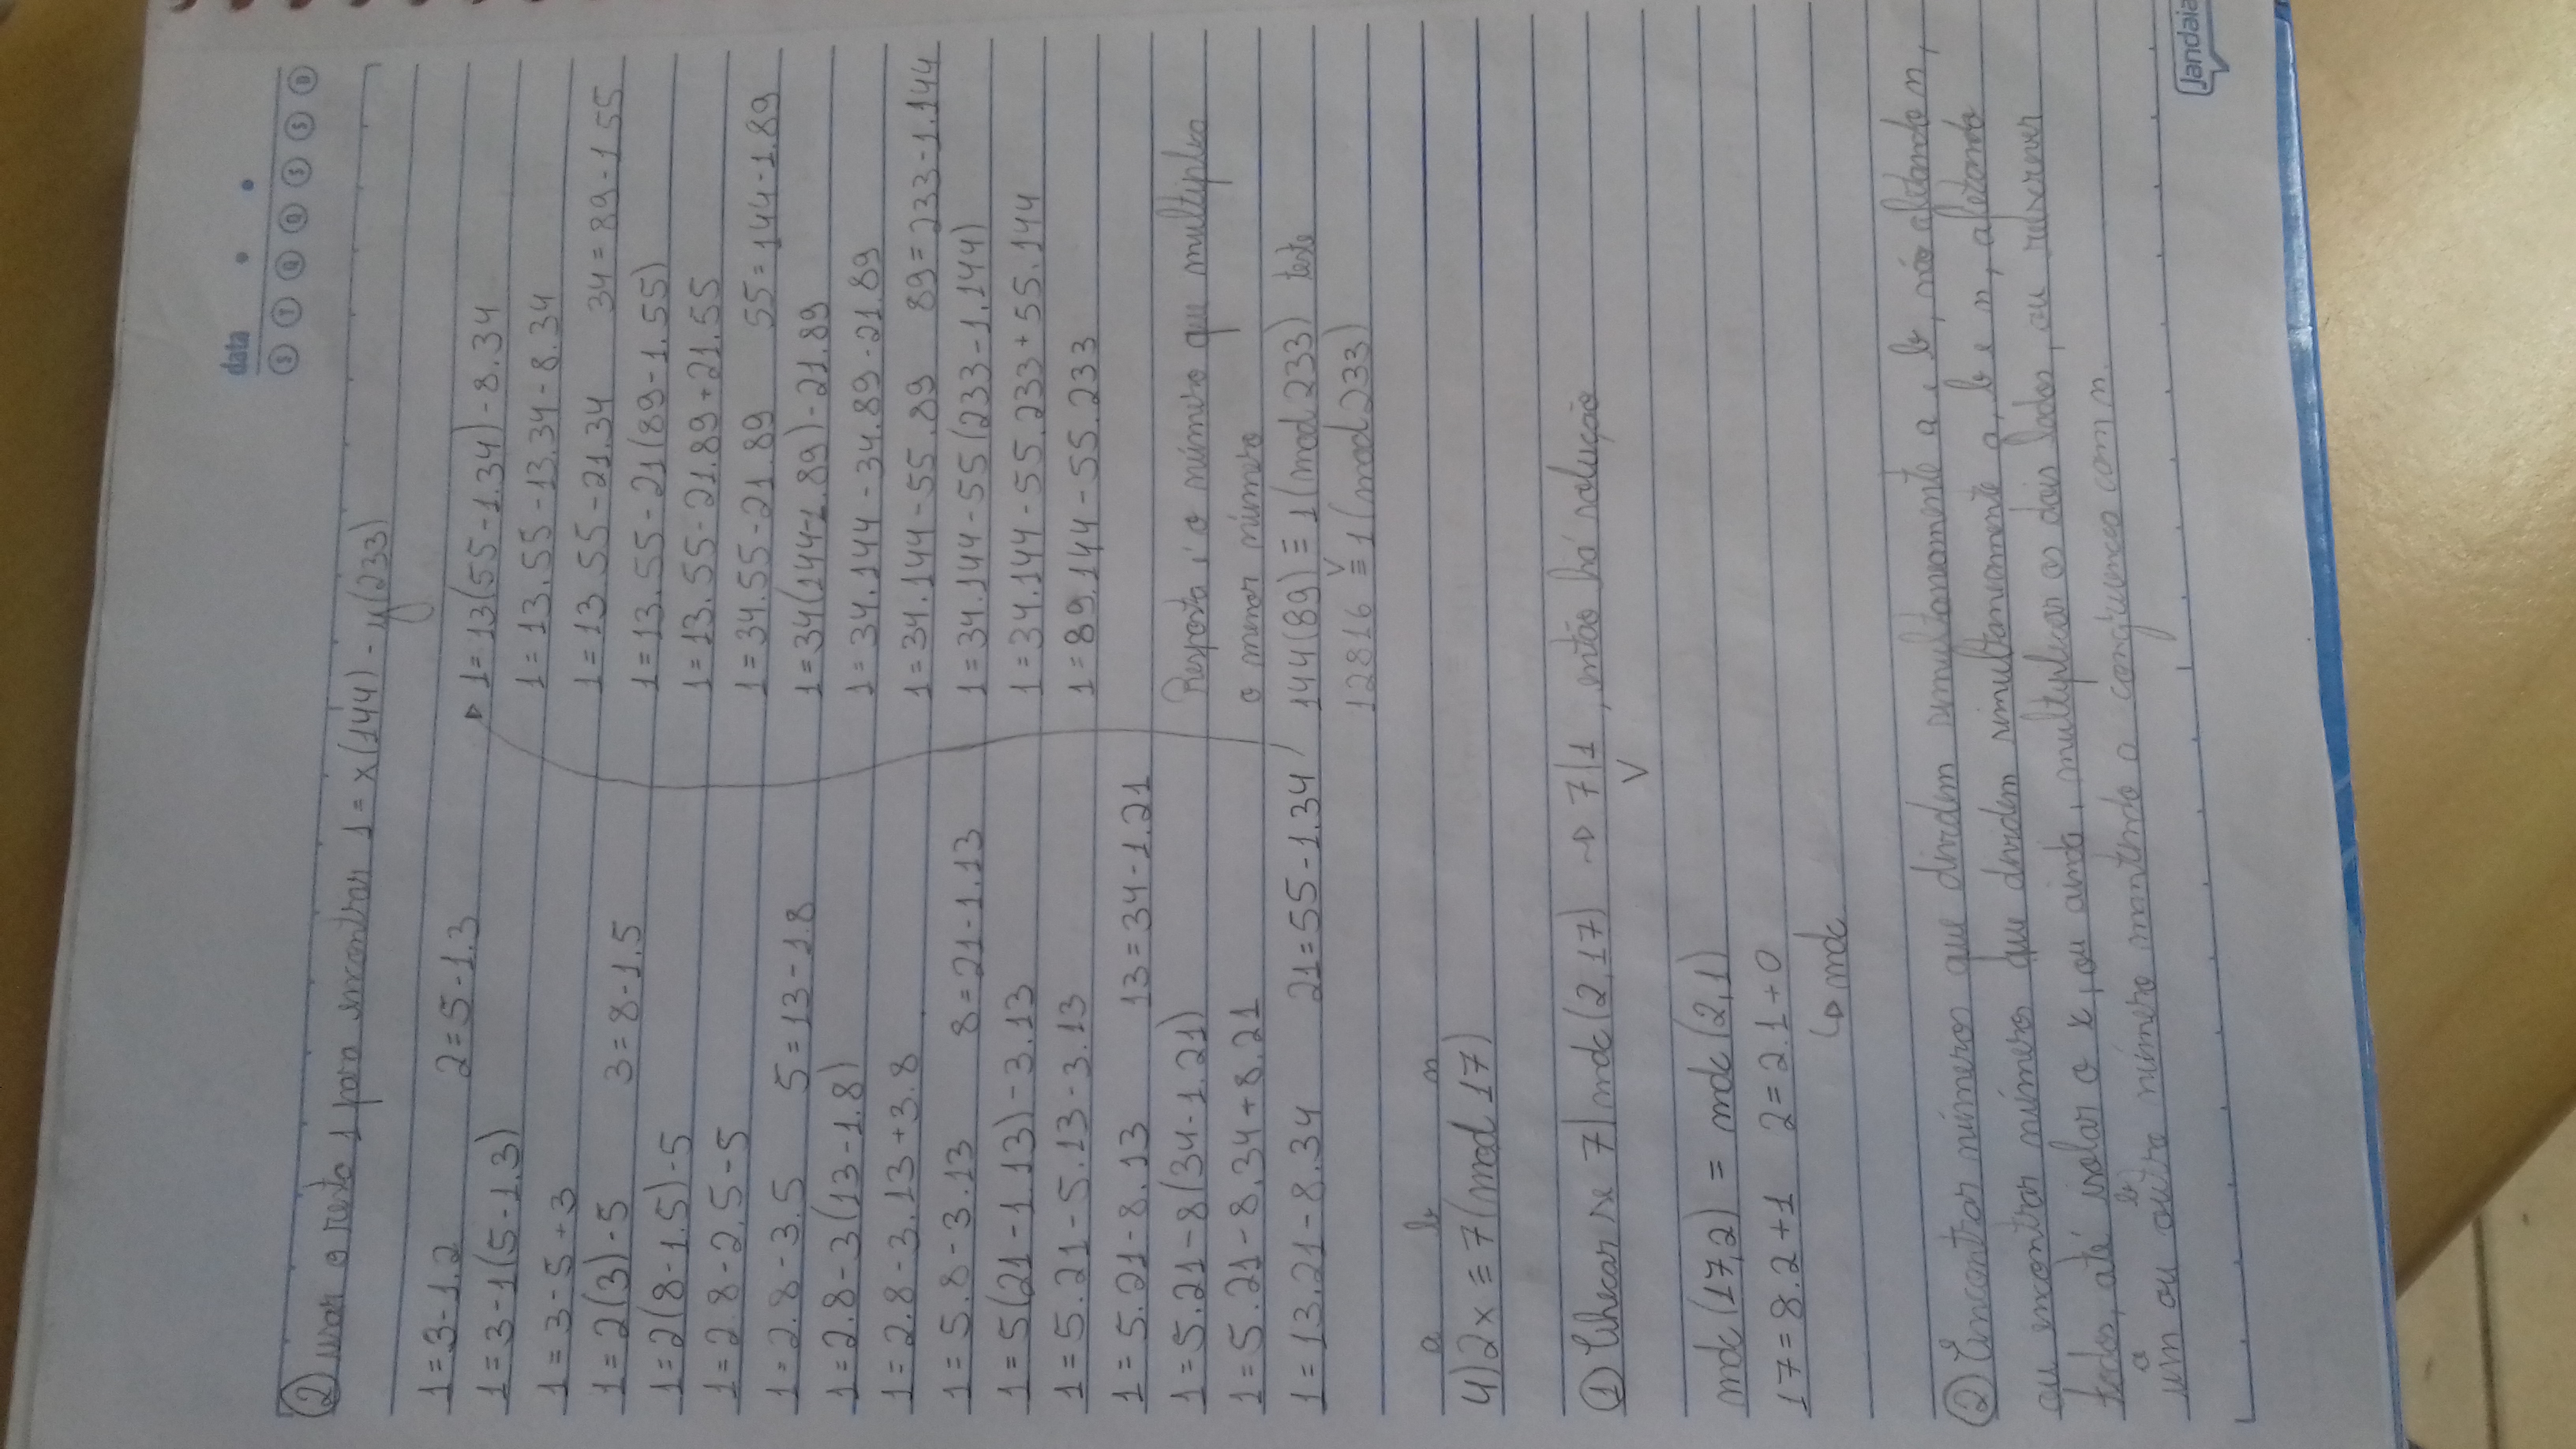 data
S T Q Q S S D
② usar o resto 1 para encontrar 1 = x(144) - y(233)
1 = 3 - 1.2 2 = 5 - 1.3
1 = 3 - 1(5 - 1.3)
1 = 3 - 5 + 3
1 = 2(3) - 5 3 = 8 - 1.5
1 = 2(8 - 1.5) - 5
1 = 2.8 - 2.5 - 5
1 = 2.8 - 3.5 5 = 13 - 1.8
1 = 2.8 - 3(13 - 1.8)
1 = 2.8 - 3.13 + 3.8
1 = 5.8 - 3.13 8 = 21 - 1.13
1 = 5(21 - 1.13) - 3.13
1 = 5.21 - 5.13 - 3.13
1 = 5.21 - 8.13 13 = 34 - 1.21
1 = 5.21 - 8(34 - 1.21)
1 = 5.21 - 8.34 + 8.21
1 = 13.21 - 8.34 21 = 55 - 1.34
1 = 13(55 - 1.34) - 8.34
1 = 13.55 - 13.34 - 8.34
1 = 13.55 - 21.34 34 = 89 - 1.55
1 = 13.55 - 21(89 - 1.55)
1 = 13.55 - 21.89 + 21.55
1 = 34.55 - 21.89 55 = 144 - 1.89
1 = 34(144 - 1.89) - 21.89
1 = 34.144 - 34.89 - 21.89
1 = 34.144 - 55.89 89 = 233 - 1.144
1 = 34.144 - 55(233 - 1.144)
1 = 34.144 - 55.233 + 55.144
1 = 89.144 - 55.233
Resposta é o número que multiplica
o menor número
144(89) ≡ 1 (mod 233) teste
V
12816 ≡ 1 (mod 233)
a b n
4) 2x ≡ 7 (mod 17)
① Checar se 7 | mdc(2,17) → 7|1, então há solução
V
mdc(17,2) = mdc(2,1)
17 = 8.2 + 1 2 = 2.1 + 0
↳ mdc
② Encontrar números que dividem simultaneamente a e b, não afetando n,
ou encontrar números que dividem simultaneamente a, b e n, afetando
todos, até isolar o x, ou ainda, multiplicar os dois lados, ou reescrever
a b
um ou outro número mantendo a congruência com n.
Jandaia